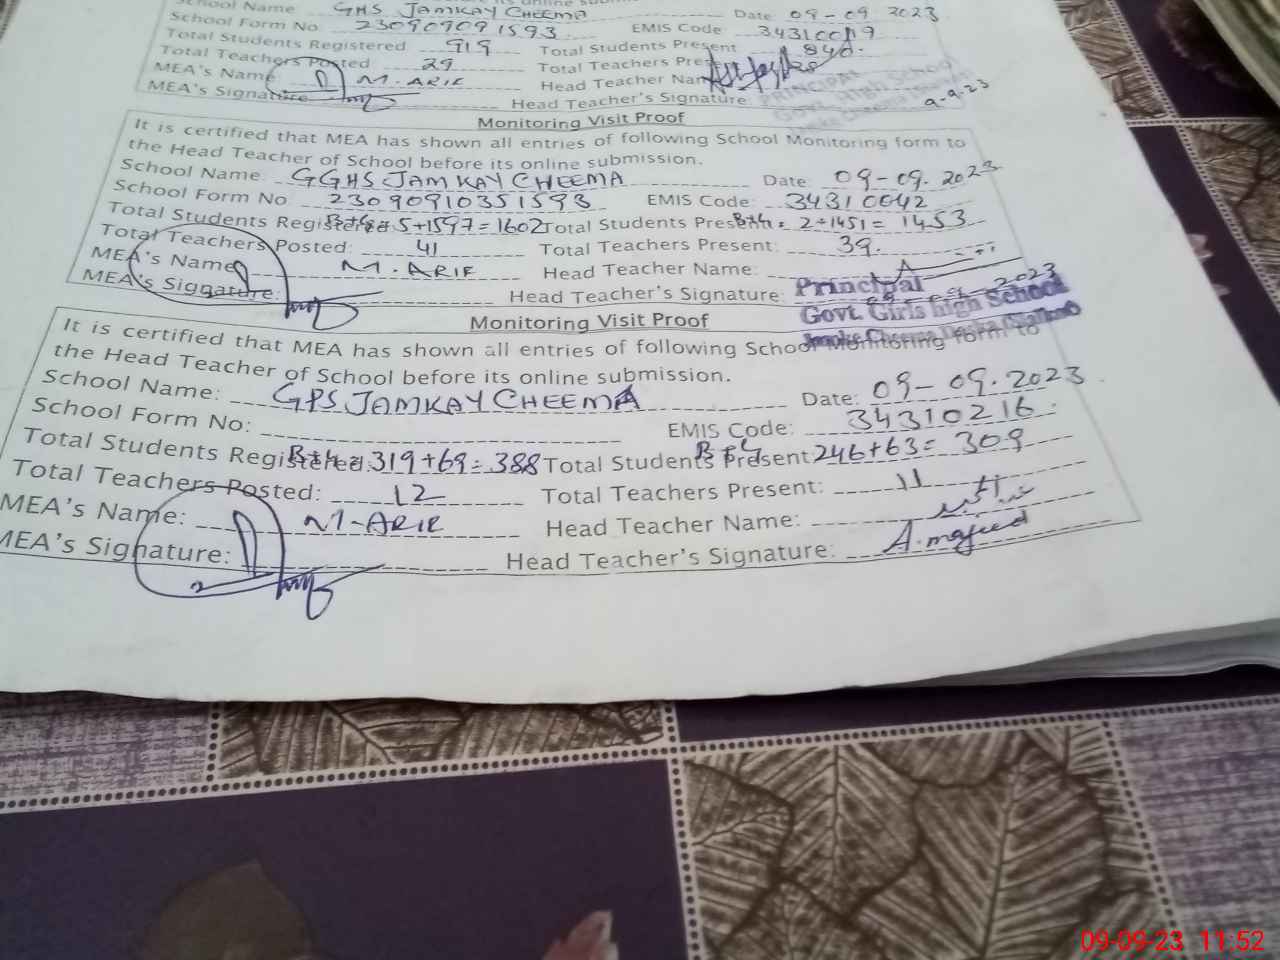 School Name GHS JAMKAY CHEEMA Date 09-09.2023
School Form No 230909091593 EMIS Code: 34310019
Total Students Registered 919 Total Students Present 840.
Total Teachers Posted 29 Total Teachers Present
MEA's Name M. ARIF Head Teacher Name
MEA's Signature Head Teacher's Signature
9-9-23
Monitoring Visit Proof
It is certified that MEA has shown all entries of following School Monitoring form to
the Head Teacher of School before its online submission.
School Name: GGHS JAMKAY CHEEMA Date: 09-09.2023
School Form No 23090910351593 EMIS Code: 34310042
Total Students Registered 5+1597=1602 Total Students Present: 2+1451=1453
Total Teachers Posted: 41 Total Teachers Present: 39.
MEA's Name M. ARIF Head Teacher Name:
MEA's Signature: Head Teacher's Signature:
Principal
Govt. Girls High School
Monitoring Visit Proof
It is certified that MEA has shown all entries of following School Monitoring form to
the Head Teacher of School before its online submission.
School Name: GPS JAMKAY CHEEMA Date: 09-09.2023
School Form No: EMIS Code: 34310216
Total Students Registered 319+69=388 Total Students Present 246+63=309
Total Teachers Posted: 12 Total Teachers Present: 11
MEA's Name: M-ARIF Head Teacher Name:
MEA's Signature: Head Teacher's Signature: A.majeed
09-09-23 11:52